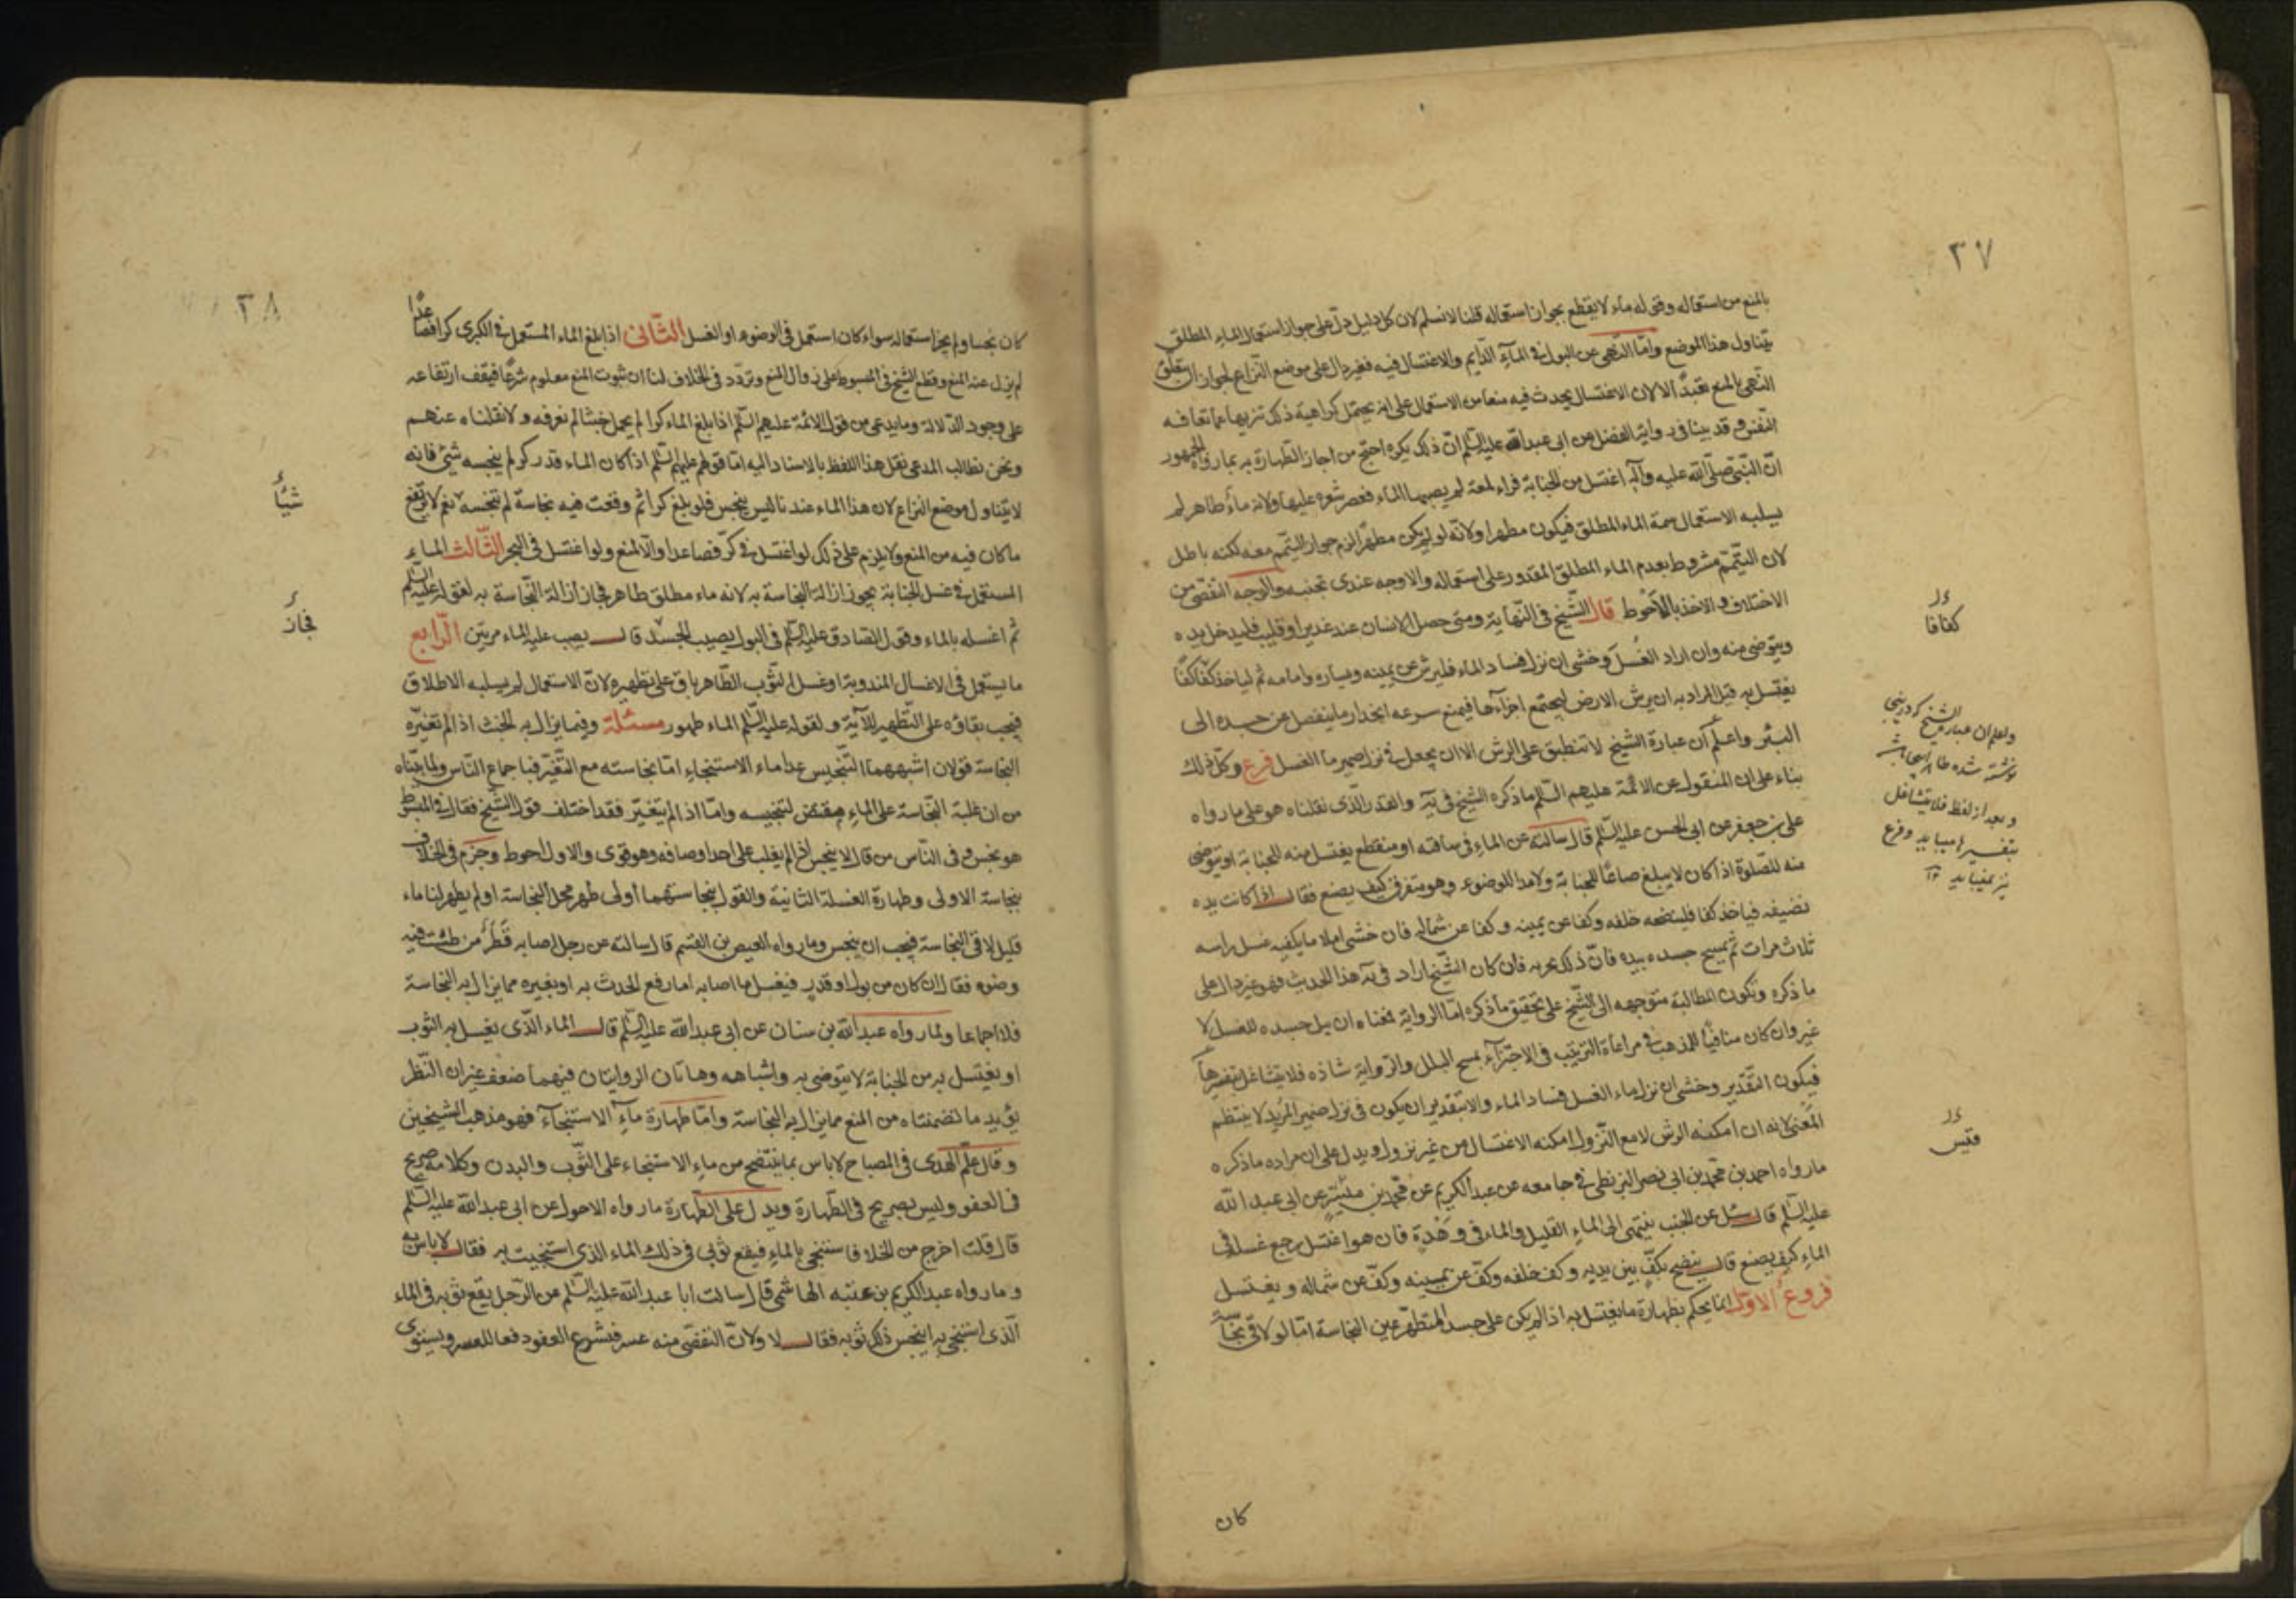 ٣٧
بالمنع من استعماله وقوله ماء لا يقطع بجواز استعماله قلنا لا نسلم لان كل دليل دل على جواز استعمال الماء المطلق
يتناول هذا الموضع وامّا النّهى عن البول فى المآء الدّايم والاغتسال فيه فغير دال على موضع النّزاع لجواز ان يتعلّق
النّهى بالمنع تعبّدًا لا لان الاغتسال يحدث فيه منعا من الاستعمال على انه يحتمل كراهية ذلك تنزيها عما تعافه
النّفس وقد بينا فى رواية الفضل عن ابى عبد الله عليه السّلم انّ ذلك يكره احتج من اجاز الطّهارة به بما رواه الجمهور
انّ النّبىّ صلّى الله عليه وآله اغتسل من الجنابة فراى لمعة لم يصبها الماء فعصر شعره عليها ولانه ماءٌ طاهر لم
يسلبه الاستعمال سمة الماء المطلق فيكون مطهرا ولانّه لو لم يكن مطهّرا لزم جواز التّيمّم معه لكنه باطل
لان التيمّم مشروط بعدم الماء المطلق المقدور على استعماله والاوجه عندى تجنبه والوجه التفصّى من
الاختلاف والاخذ بالاَحْوط قال الشّيخ فى النّهاية ومتى حصل الانسان عند غدير او قليب فليدخل يده
ويتوضى منه وان اراد الغُسل وخشى ان نزل فساد الماء فليرش عن يمينه ويساره وامامه ثم لياخذ كفّا كفّا
يغتسل به قيل المراد به ان يرش الارض ليجتمع اجزآءها فيمنع سرعه انحدار ما ينفصل عن جسده الى
البئر واعلم أن عبارة الشيخ لا تنطبق على الرش الا ان يجعل فى نزل ضمير ما الغسل فرع وكلّ ذلك
بناء على ان المنقول عن الائمّة عليهم السّلم ما ذكره الشيخ فى يَه والقدر الّذى نقلناه هو على ما رواه
على بن جعفر عن ابى الحسن عليه السّلم قال سالته عن الماء فى ساقته او منقطع يغتسل منه للجنابة او يتوضى
منه للصّلوة اذا كان لا يبلغ صاعًا للجنابة ولا مدا للوضوء وهو متفرق كيف يصنع فقال اذا كانت يده
نضيفه فياخذ كفا فلينضحه خلفه وكفا عن يمينه وكفا عن شماله فان خشى ان لا يكفيه غسل راسه
ثلاث مرات ثم يمسح جسده بيده فانّ ذلك يجزيه فان كان الشّيخ اراد فى يَه هذا الحديث فهو غير دال على
ما ذكره وتكون المطالبة متوجهه الى الشّيخ على تحقيق ما ذكره امّا الرواية فمعناه ان يبل جسده للغسل لا
غير وان كان منافيًا للمذهب فى مراعاة الترتيب فى الاجتزآء بمسح البلل والرّواية شاذه فلا يتشاغل بتفسيرها
فيكون التّقدير وخشى ان نزل ماء الغسل فساد الماء والا بتقدير ان يكون فى نزل ضمير المريد لا ينتظم
المعنى لانه ان امكنه الرش لا مع النّزول امكنه الاغتسال من غير نزول ويدل على ان مراده ما ذكره
ما رواه احمد بن محمّد بن ابى نصر البزنطى فى جامعه عن عبد الكريم عن محمّد بن مُيَسّر عن ابى عبد الله
عليه السّلم قال سئل عن الجنب ينتهى الى الماء القليل والماء فى وَهْدَةٍ فان هو اغتسل رجع غسله فى
الماء كيف يصنع قال ينضح بكفّ بين يديه وكف خلفه وكفّ عن يمينه وكفّ عن شماله ويغتسل
فروع الاوّل انما يحكم بطهارة ما يغتسل به اذا لم يكن على جسد المتطهّر عين النجاسة امّا لو لاقى نجاسة
كان
كفافا
واعلم ان عبارة الشيخ
نوشته شده
وبعد از لفظ فلا يتشاغل
بتفسيرها ميبايد وفرع
نيز نميبايد
٣٨
كان نجسا ولم يجز استعماله سواء كان استعمل فى الوضوء او الغسل الثّانى اذا بلغ الماء المستعمل فى الكبرى كرا فصاعدًا
لم يزل عنه المنع وقطع الشّيخ فى المبسوط على زوال المنع وتردّد فى الخلاف لنا ان ثبوت المنع معلوم شرعًا فيقف ارتفاعه
على وجود الدّلالة وما يدعى من قول الائمّة عليهم السّلم اذا بلغ الماء كرا لم يحمل خبثا لم نعرفه ولا نقلناه عنهم
ونحن نطالب المدعى نقل هذا اللفظ بالاسناد اليه امّا قولهم عليهم السّلم اذا كان الماء قدر كر لم ينجسه شئ فانه
لا يتناول موضع النزاع لان هذا الماء عندنا ليس بنجس فلو بلغ كرا ثم وقعت فيه نجاسة لم تنجسه نعم لا يرتفع
ما كان فيه من المنع ولا يلزم على ذلك لو اغتسل فى كرّ فصاعدا والّا لمنع ولو اغتسل فى البحر الثّالث الماء
المستعمل فى غسل الجنابة يجوز ازالة النجاسة به لانه ماء مطلق طاهر فجاز ازالة النّجاسة به لقوله عليه السّلم
ثم اغسله بالماء وقول الصّادق عليه السّلم فى البول يصيب الجسد قال يصب عليه الماء مرتين الرّابع
ما يستعمل فى الاغسال المندوبة او غسل الثّوب الطّاهر باق على تطهيره لانّ الاستعمال لم يسلبه الاطلاق
فيجب بقاؤه على التّطهير للآية ولقوله عليه السّلم الماء طهور مسئلة وفيما يزال به الخبث اذا لم تغيّره
النجاسة قولان اشبههما التّنجيس عدا ماء الاستنجاء امّا نجاسته مع التّغيّر فباجماع النّاس ولما بيّناه
من ان غلبة النّجاسة على الماء مقتض لتنجيسه وامّا اذا لم يتغيّر فقد اختلف قول الشّيخ فقال فى المبسوط
هو نجس وفى النّاس من قال لا ينجس اذا لم يغلب على احد اوصافه وهو قوى والاول احوط وجَزَم فى الخلاف
بنجاسة الاولى وطهارة الغسلة الثانية والقول بنجاستهما اولى طهر محل النجاسة او لم يطهر لنا ماء
قليل لاقى النجاسة فيجب ان ينجس وما رواه العيص بن القسم قال سالته عن رجل اصابه قَطْرٌ من طشت فيه
وضوء فقال ان كان من بول او قذر فيغسل ما اصابه اما رفع الحدث به او بغيره مما يزال به النجاسة
فلا اجماعا ولما رواه عبد الله بن سنان عن ابى عبد الله عليه السّلم قال الماء الّذى يغسل به الثوب
او يغتسل به من الجنابة لا يتوضى به واشباهه وهاتان الروايتان فيهما ضعف غير ان النّظر
يؤيد ما تضمنتاه من المنع مما يزال به النجاسة وامّا طهارة مآء الاستنجآء فهو مذهب الشيخين
وقال علم الهدى فى المصباح لا باس بما ينتضح من ماء الاستنجاء على الثّوب والبدن وكلامه صريح
فى العفو وليس بصريح فى الطّهارة ويدل على الطّهارة ما رواه الاحول عن ابى عبد الله عليه السّلم
قال قلت اخرج من الخلا فاستنجى بالماء فيقع ثوبى فى ذلك الماء الذى استنجيت به فقال لا باس به
وما رواه عبد الكريم بن عتبه الهاشمى قال سالت ابا عبد الله عليه السّلم عن الرّجل يقع ثوبه فى الماء
الّذى استنجى به اينجس ذلك ثوبه فقال لا ولانّ التفصّى منه عسر فشرع العفو دفعا للعسر ويستوى
شيأ
فجاز